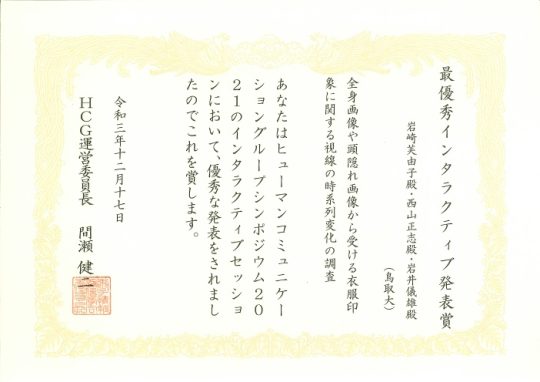 最優秀インタラクティブ発表賞
岩崎芙由子殿・西山正志殿・岩井儀雄殿
(鳥取大)
全身画像や頭隠れ画像から受ける衣服印
象に関する視線の時系列変化の調査
あなたはヒューマンコミュニケー
ショングループシンポジウム20
21のインタラクティブセッショ
ンにおいて、優秀な発表をされまし
たのでこれを賞します。
令和三年十二月十七日
HCG運営委員長 間瀬 健二